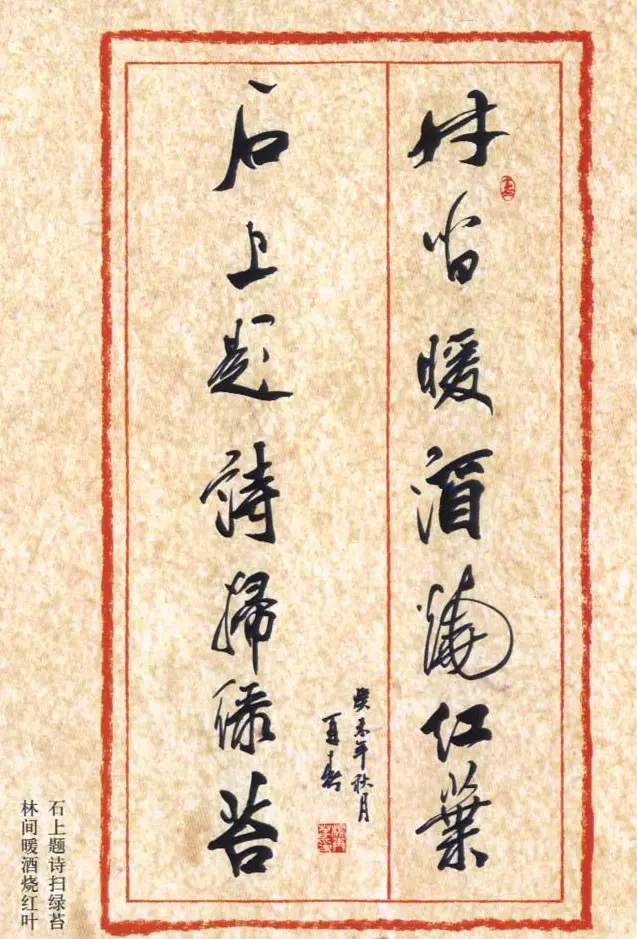 林間暖酒燒紅葉
石上題詩掃緑苔
癸未年秋月
石上题诗扫绿苔
林间暖酒烧红叶